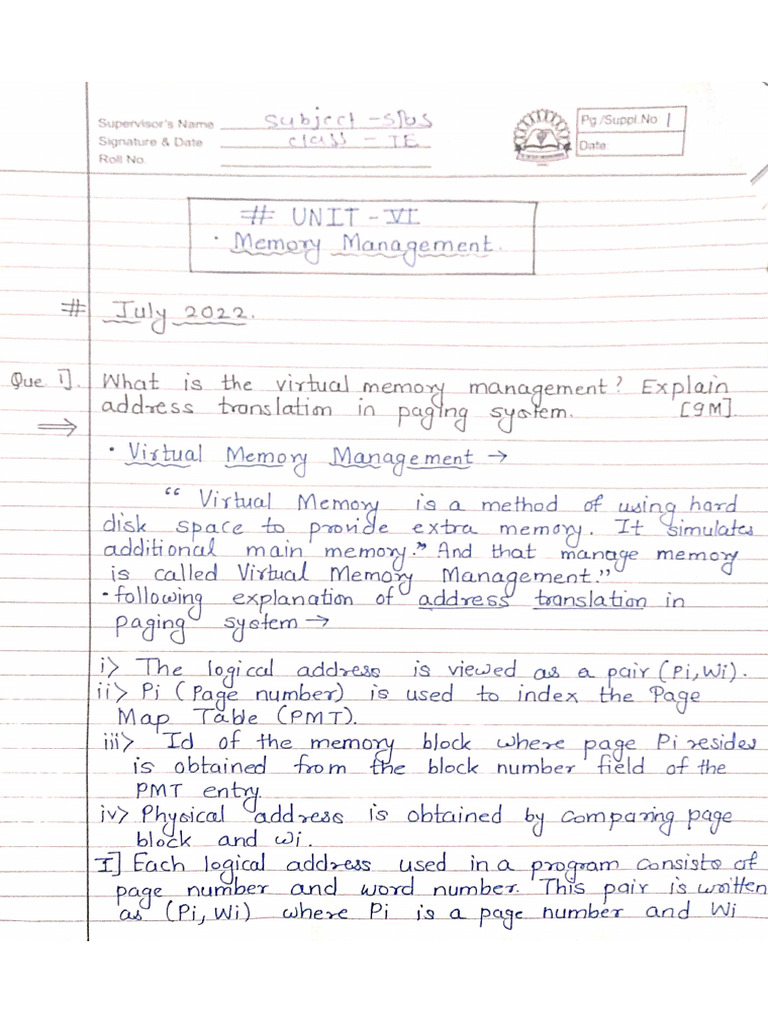 Supervisor's Name Subject - SPOS
Signature & Date class - TE
Roll No.
Pg./Suppl.No 1
Date:
# UNIT - VI
· Memory Management.
# July 2022.
Que 1]. What is the virtual memory management? Explain
address translation in paging system. [9M].
⇒
· Virtual Memory Management →
“ Virtual Memory is a method of using hard
disk space to provide extra memory. It simulates
additional main memory.” And that manage memory
is called Virtual Memory Management.”
· following explanation of address translation in
paging system →
i> The logical address is viewed as a pair (Pi, Wi).
ii> Pi (Page number) is used to index the Page
Map Table (PMT).
iii> Id of the memory block where page Pi resides
is obtained from the block number field of the
PMT entry.
iv> Physical address is obtained by comparing page
block and wi.
I] Each logical address used in a program consists of
page number and word number. This pair is written
as (Pi, Wi) where Pi is a page number and Wi